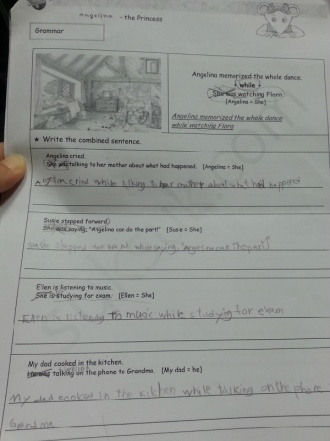 Angelina - the Princess
Grammar
Angelina memorized the whole dance.
while
She was watching Flora.
[Angelina = She]
Angelina memorized the whole dance
while watching Flora
★ Write the combined sentence.
Angelina cried.
She was talking to her mother about what had happened. [Angelina = She]
Angelina cried while talking to her mother about what had happened
Susie stepped forward.
She was saying, "Angelina can do the part!" [Susie = She]
Susie stepped forward while saying, "Angelina can the part!"
Ellen is listening to music.
She is studying for exam. [Ellen = She]
Ellen is listening to music while studying for exam
My dad cooked in the kitchen.
He was talking on the phone to Grandma. [My dad = he]
My dad cooked in the kitchen while talking on the phone
Grandma